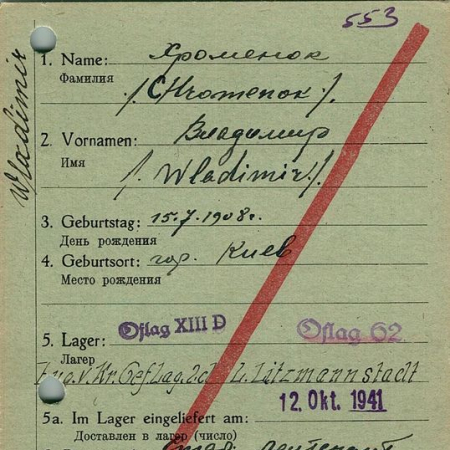 553
Wladimir
1. Name: Хроменок
Фамилия /. Chromenok /.
2. Vornamen: Владимир
Имя /. Wladimir /.
3. Geburtstag: 15.7.1908г.
День рождения
4. Geburtsort: гор. Киев
Место рождения
5. Lager: Oflag XIII D Oflag 62
Лагер
v. Kr. Gef. Lag. Litzmannstadt
12. Okt. 1941
5a. Im Lager eingeliefert am:
Доставлен в лагер (число)